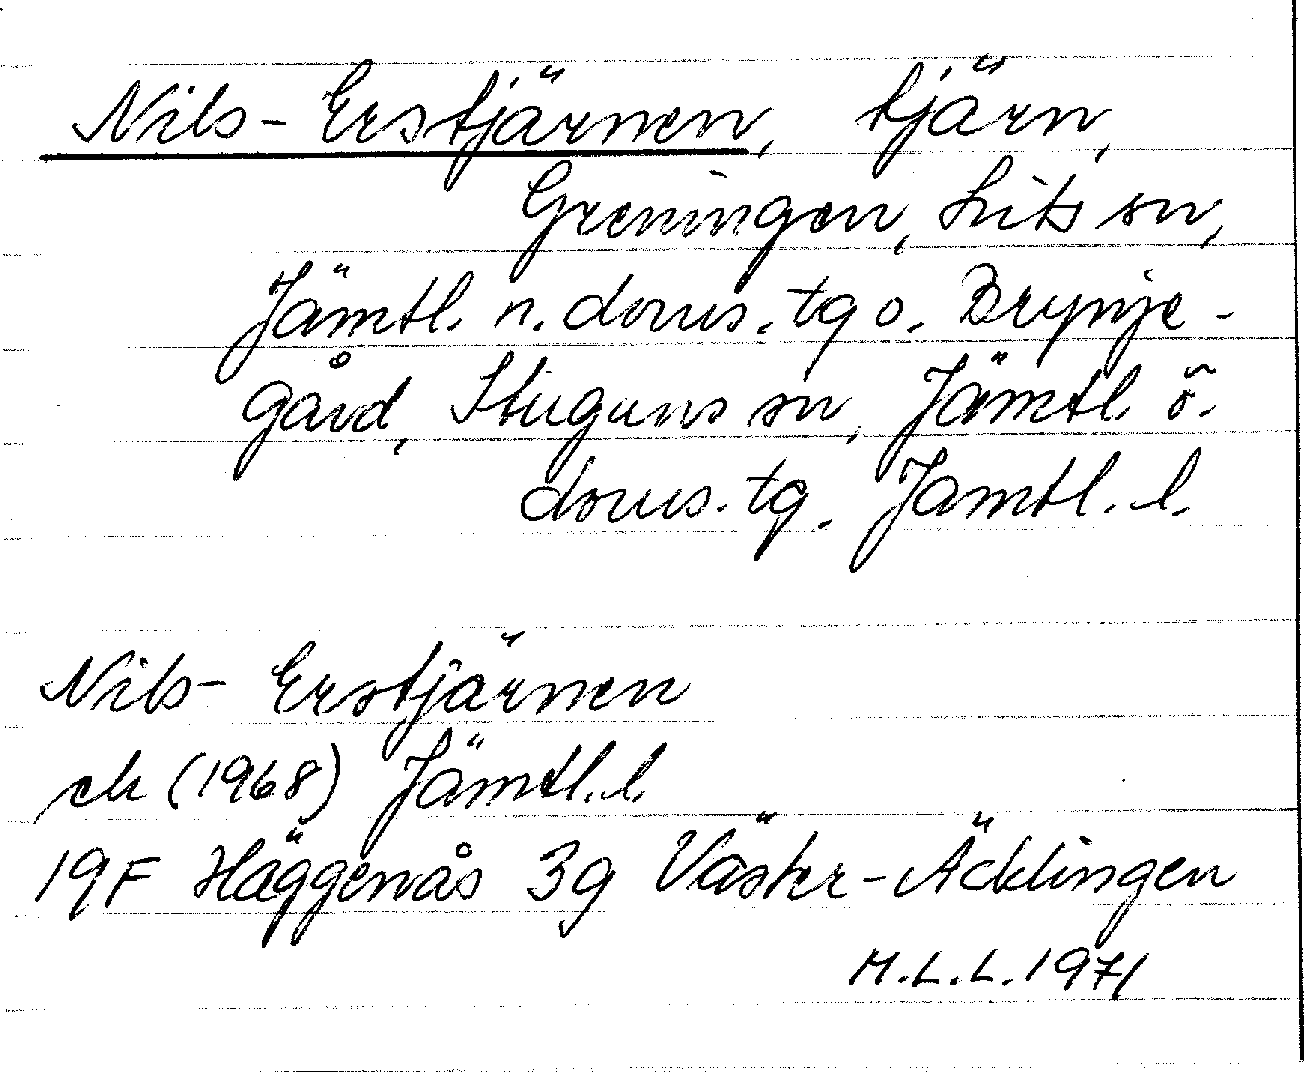 Nils-Erstjärnen, tjärn,
Greningen, Lits sn,
Jämtl. n. doms. tg o. Brynje-
gård, Stuguns sn, Jämtl. ö.
doms. tg. Jämtl. l.
Nils-Erstjärnen
ek (1968) Jämtl. l.
19F Häggenås 3g Väster-Äcklingen
M.L.L. 1971